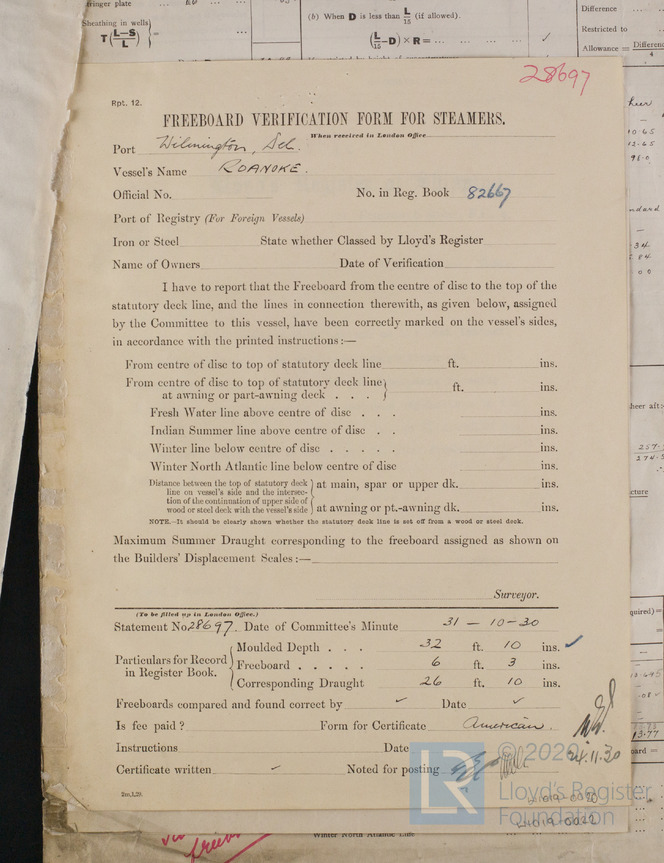 fringer plate
Sheathing in wells
T(L-S/L) =
(b) When D is less than L/15 (if allowed).
(L/15 -D) × R =
Difference
Restricted to
Allowance = Difference/4
28697
Rpt. 12.
FREEBOARD VERIFICATION FORM FOR STEAMERS.
When received in London Office
Port Wilmington, Del.
Vessel's Name ROANOKE.
Official No. No. in Reg. Book 82667
Port of Registry (For Foreign Vessels)
Iron or Steel State whether Classed by Lloyd's Register
Name of Owners Date of Verification
I have to report that the Freeboard from the centre of disc to the top of the
statutory deck line, and the lines in connection therewith, as given below, assigned
by the Committee to this vessel, have been correctly marked on the vessel's sides,
in accordance with the printed instructions:—
From centre of disc to top of statutory deck line ft. ins.
From centre of disc to top of statutory deck line
at awning or part-awning deck . . . ft. ins.
Fresh Water line above centre of disc . . . ins.
Indian Summer line above centre of disc . . ins.
Winter line below centre of disc . . . . . ins.
Winter North Atlantic line below centre of disc ins.
Distance between the top of statutory deck
line on vessel's side and the intersec-
tion of the continuation of upper side of
wood or steel deck with the vessel's side
at main, spar or upper dk. ins.
at awning or pt.-awning dk. ins.
NOTE.—It should be clearly shown whether the statutory deck line is set off from a wood or steel deck.
Maximum Summer Draught corresponding to the freeboard assigned as shown on
the Builders' Displacement Scales:—
Surveyor.
(To be filled up in London Office.)
Statement No. 28697. Date of Committee's Minute 31 - 10 - 30
Particulars for Record
in Register Book.
Moulded Depth . . . 32 ft. 10 ins. ✓
Freeboard . . . . . 6 ft. 3 ins.
Corresponding Draught 26 ft. 10 ins.
Freeboards compared and found correct by ✓ Date ✓
Is fee paid? Form for Certificate American.
Instructions Date
24.11.30
Certificate written Noted for posting
2m,1,29.
LR
© 2020
Lloyd's Register
Foundation
Winter North Atlantic Line